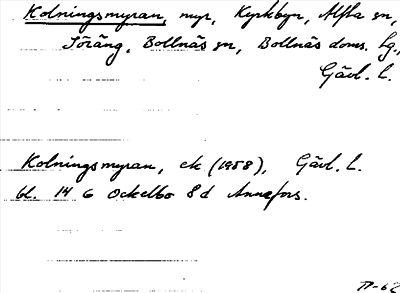 Kolningsmyran, myr, Kyrkbyn, Alfta sn,
Söräng, Bollnäs sn, Bollnäs doms. lg.,
Gävl. l.
Kolningsmyran, ek (1958), Gävl. l.
bl. 14 G Ockelbo 8d Annefors.